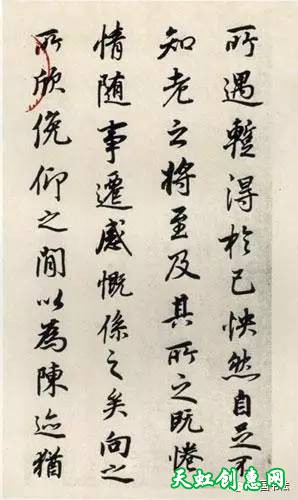 所遇暫得於己怏然自足不
知老之將至及其所之既惓
情随事遷感慨係之矣向之
所欣俛仰之間以為陳迹猶
天虹创意网